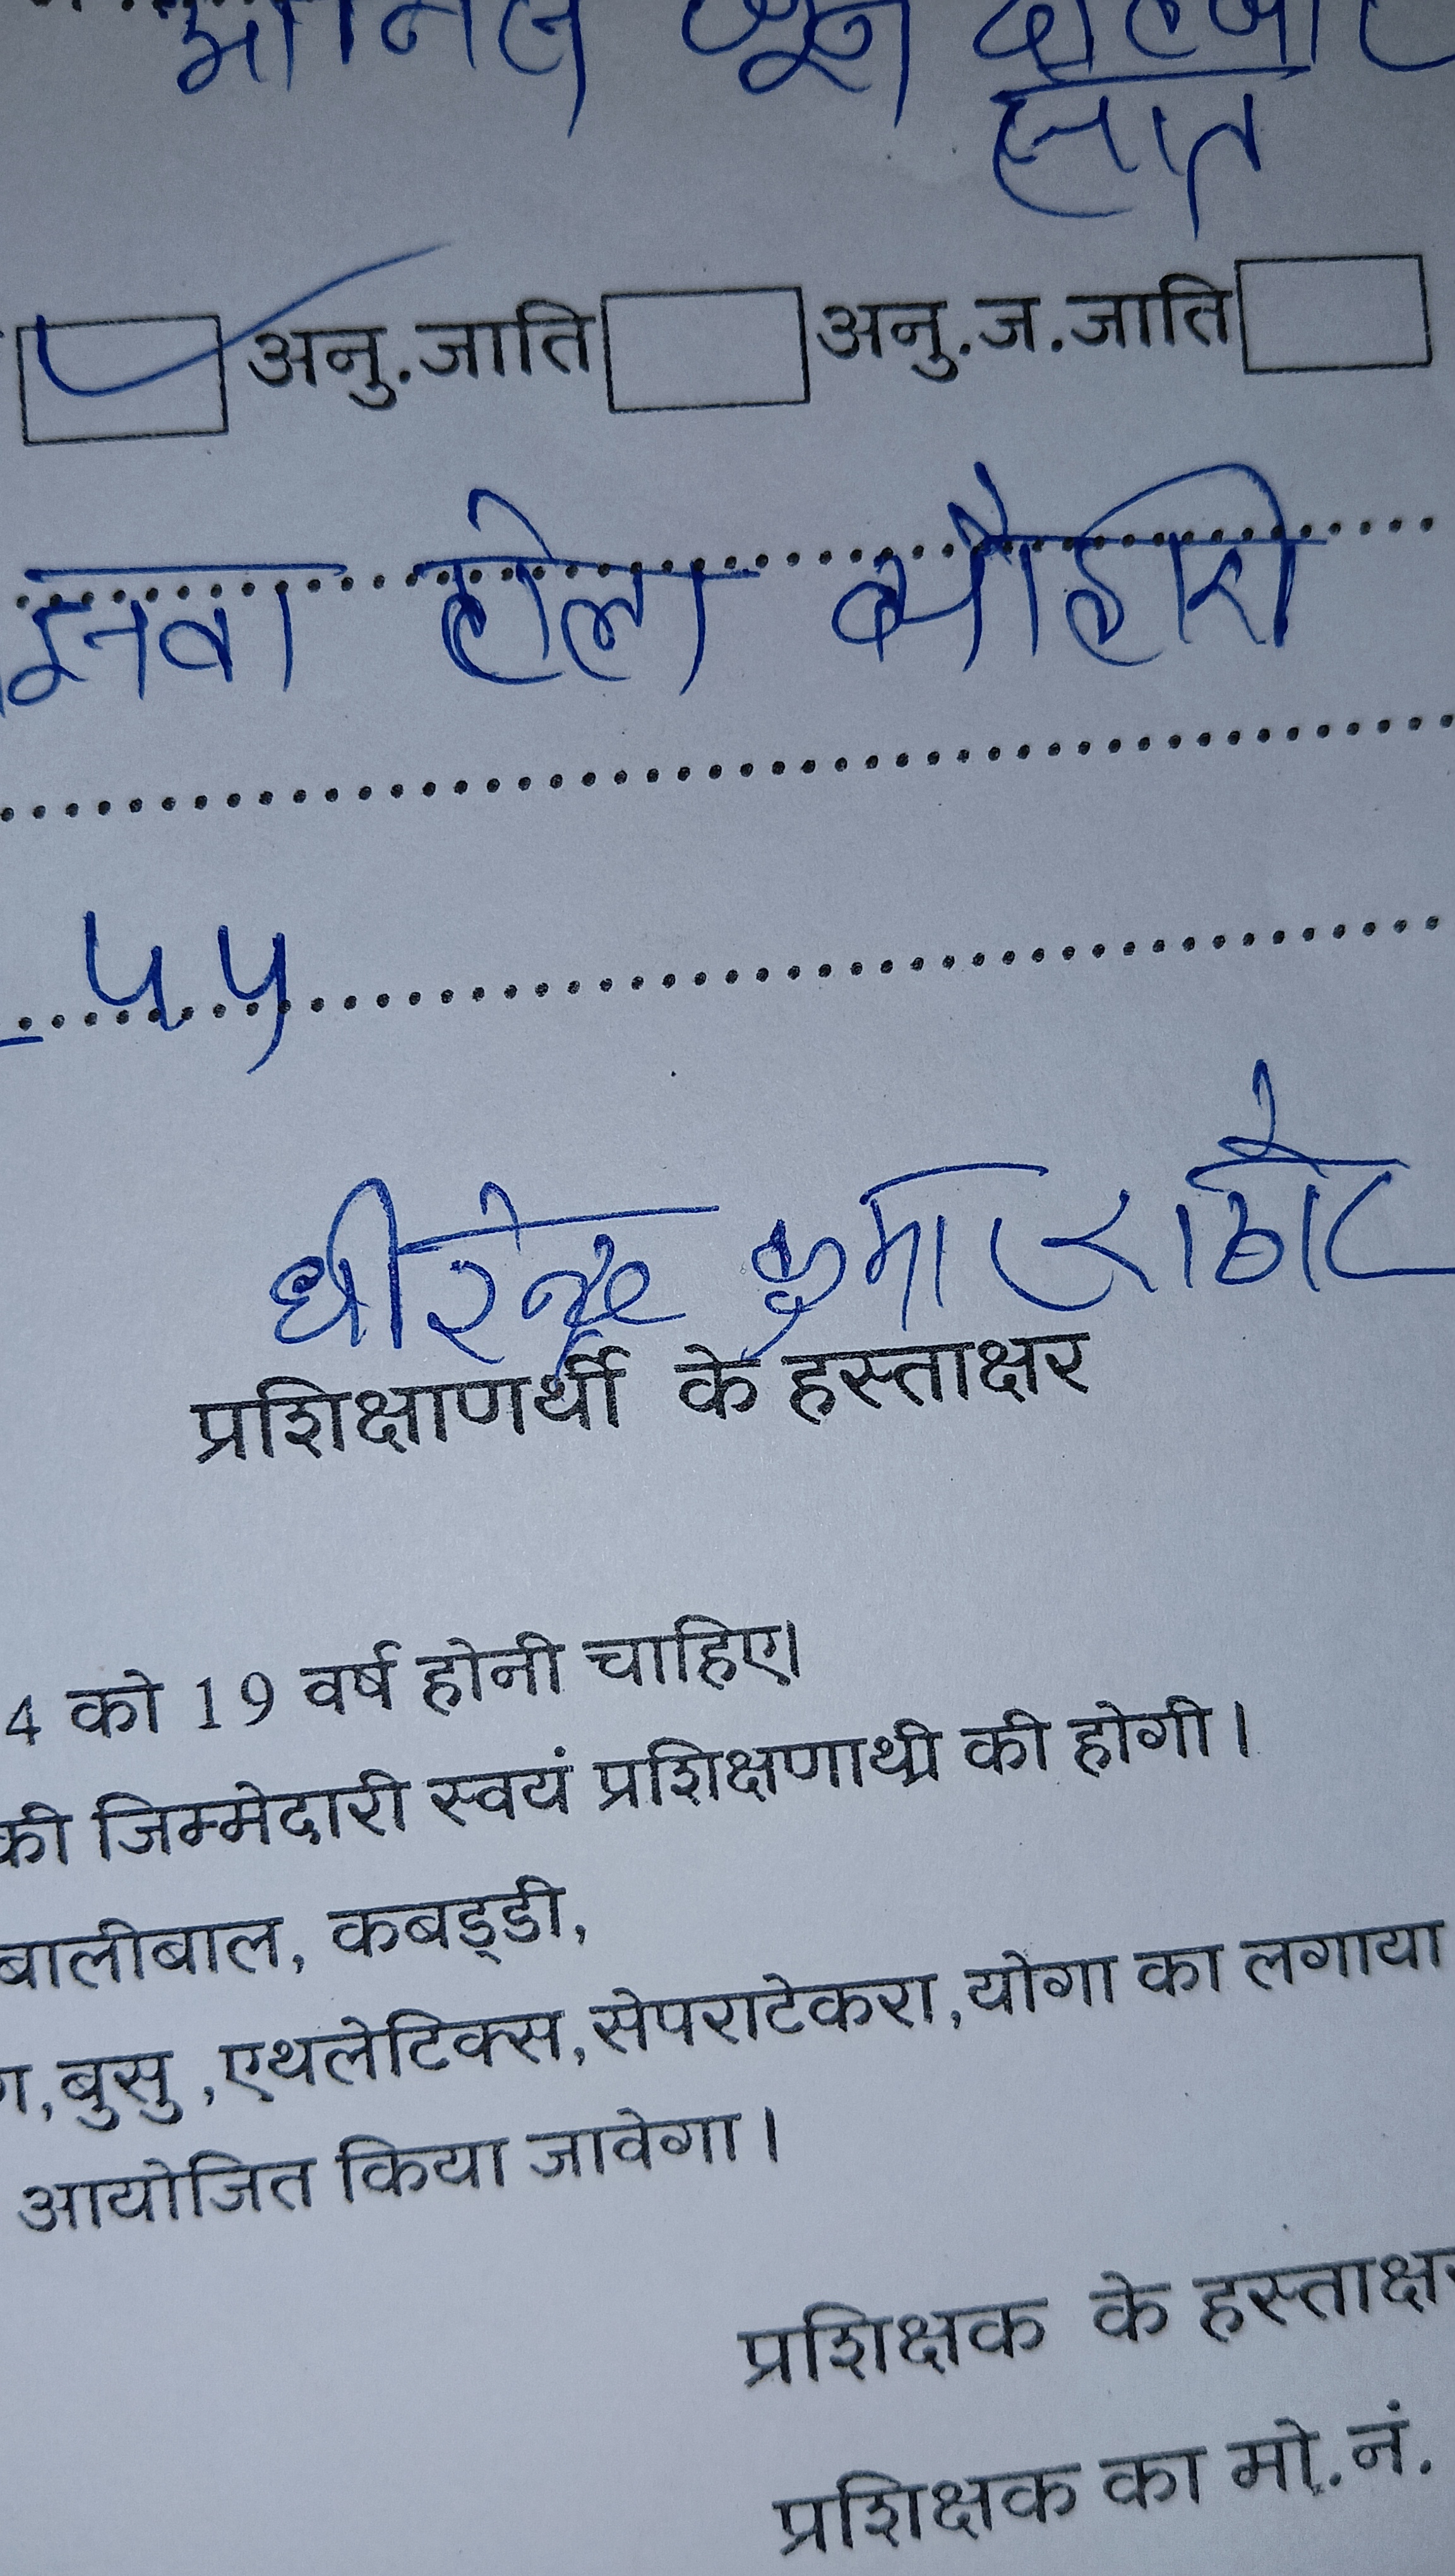 जून दो हजार
सात
अनु.जाति अनु.ज.जाति
टोला ब्यौहारी
५५
धीरेन्द्र कुमार राठौर
प्रशिक्षाणर्थी के हस्ताक्षर
4 को 19 वर्ष होनी चाहिए।
की जिम्मेदारी स्वयं प्रशिक्षणाथी की होगी।
बालीबाल, कबड्डी,
बुसु ,एथलेटिक्स,सेपराटेकरा,योगा का लगाया
आयोजित किया जावेगा।
प्रशिक्षक के हस्ताक्षर
प्रशिक्षक का मो.नं.